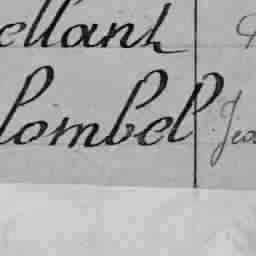 ellant
lombel